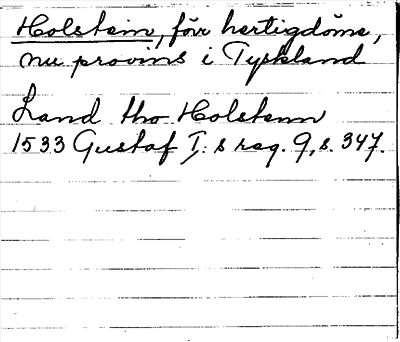 Holstein, förr hertigdöme,
nu provins i Tyskland
Land tho Holstenn
1533 Gustaf I:s reg. 9, s. 347.